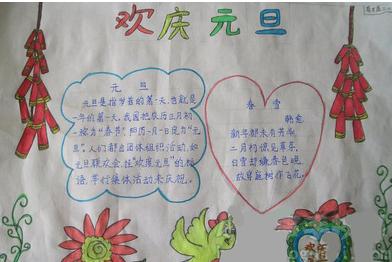 欢庆元旦
元旦
元旦是指岁首的第一天,也就是
一年的第一天。我国把农历正月初
一称为"春节",阳历1月1日定为"元
旦"。人们都会团体组织活动,如
元旦联欢会,挂"欢度元旦"的标
语,举行集体活动来庆祝。
春雪
韩愈
新年都未有芳华,
二月初惊见草芽。
白雪却嫌春色晚,
故穿庭树作飞花。
欢庆